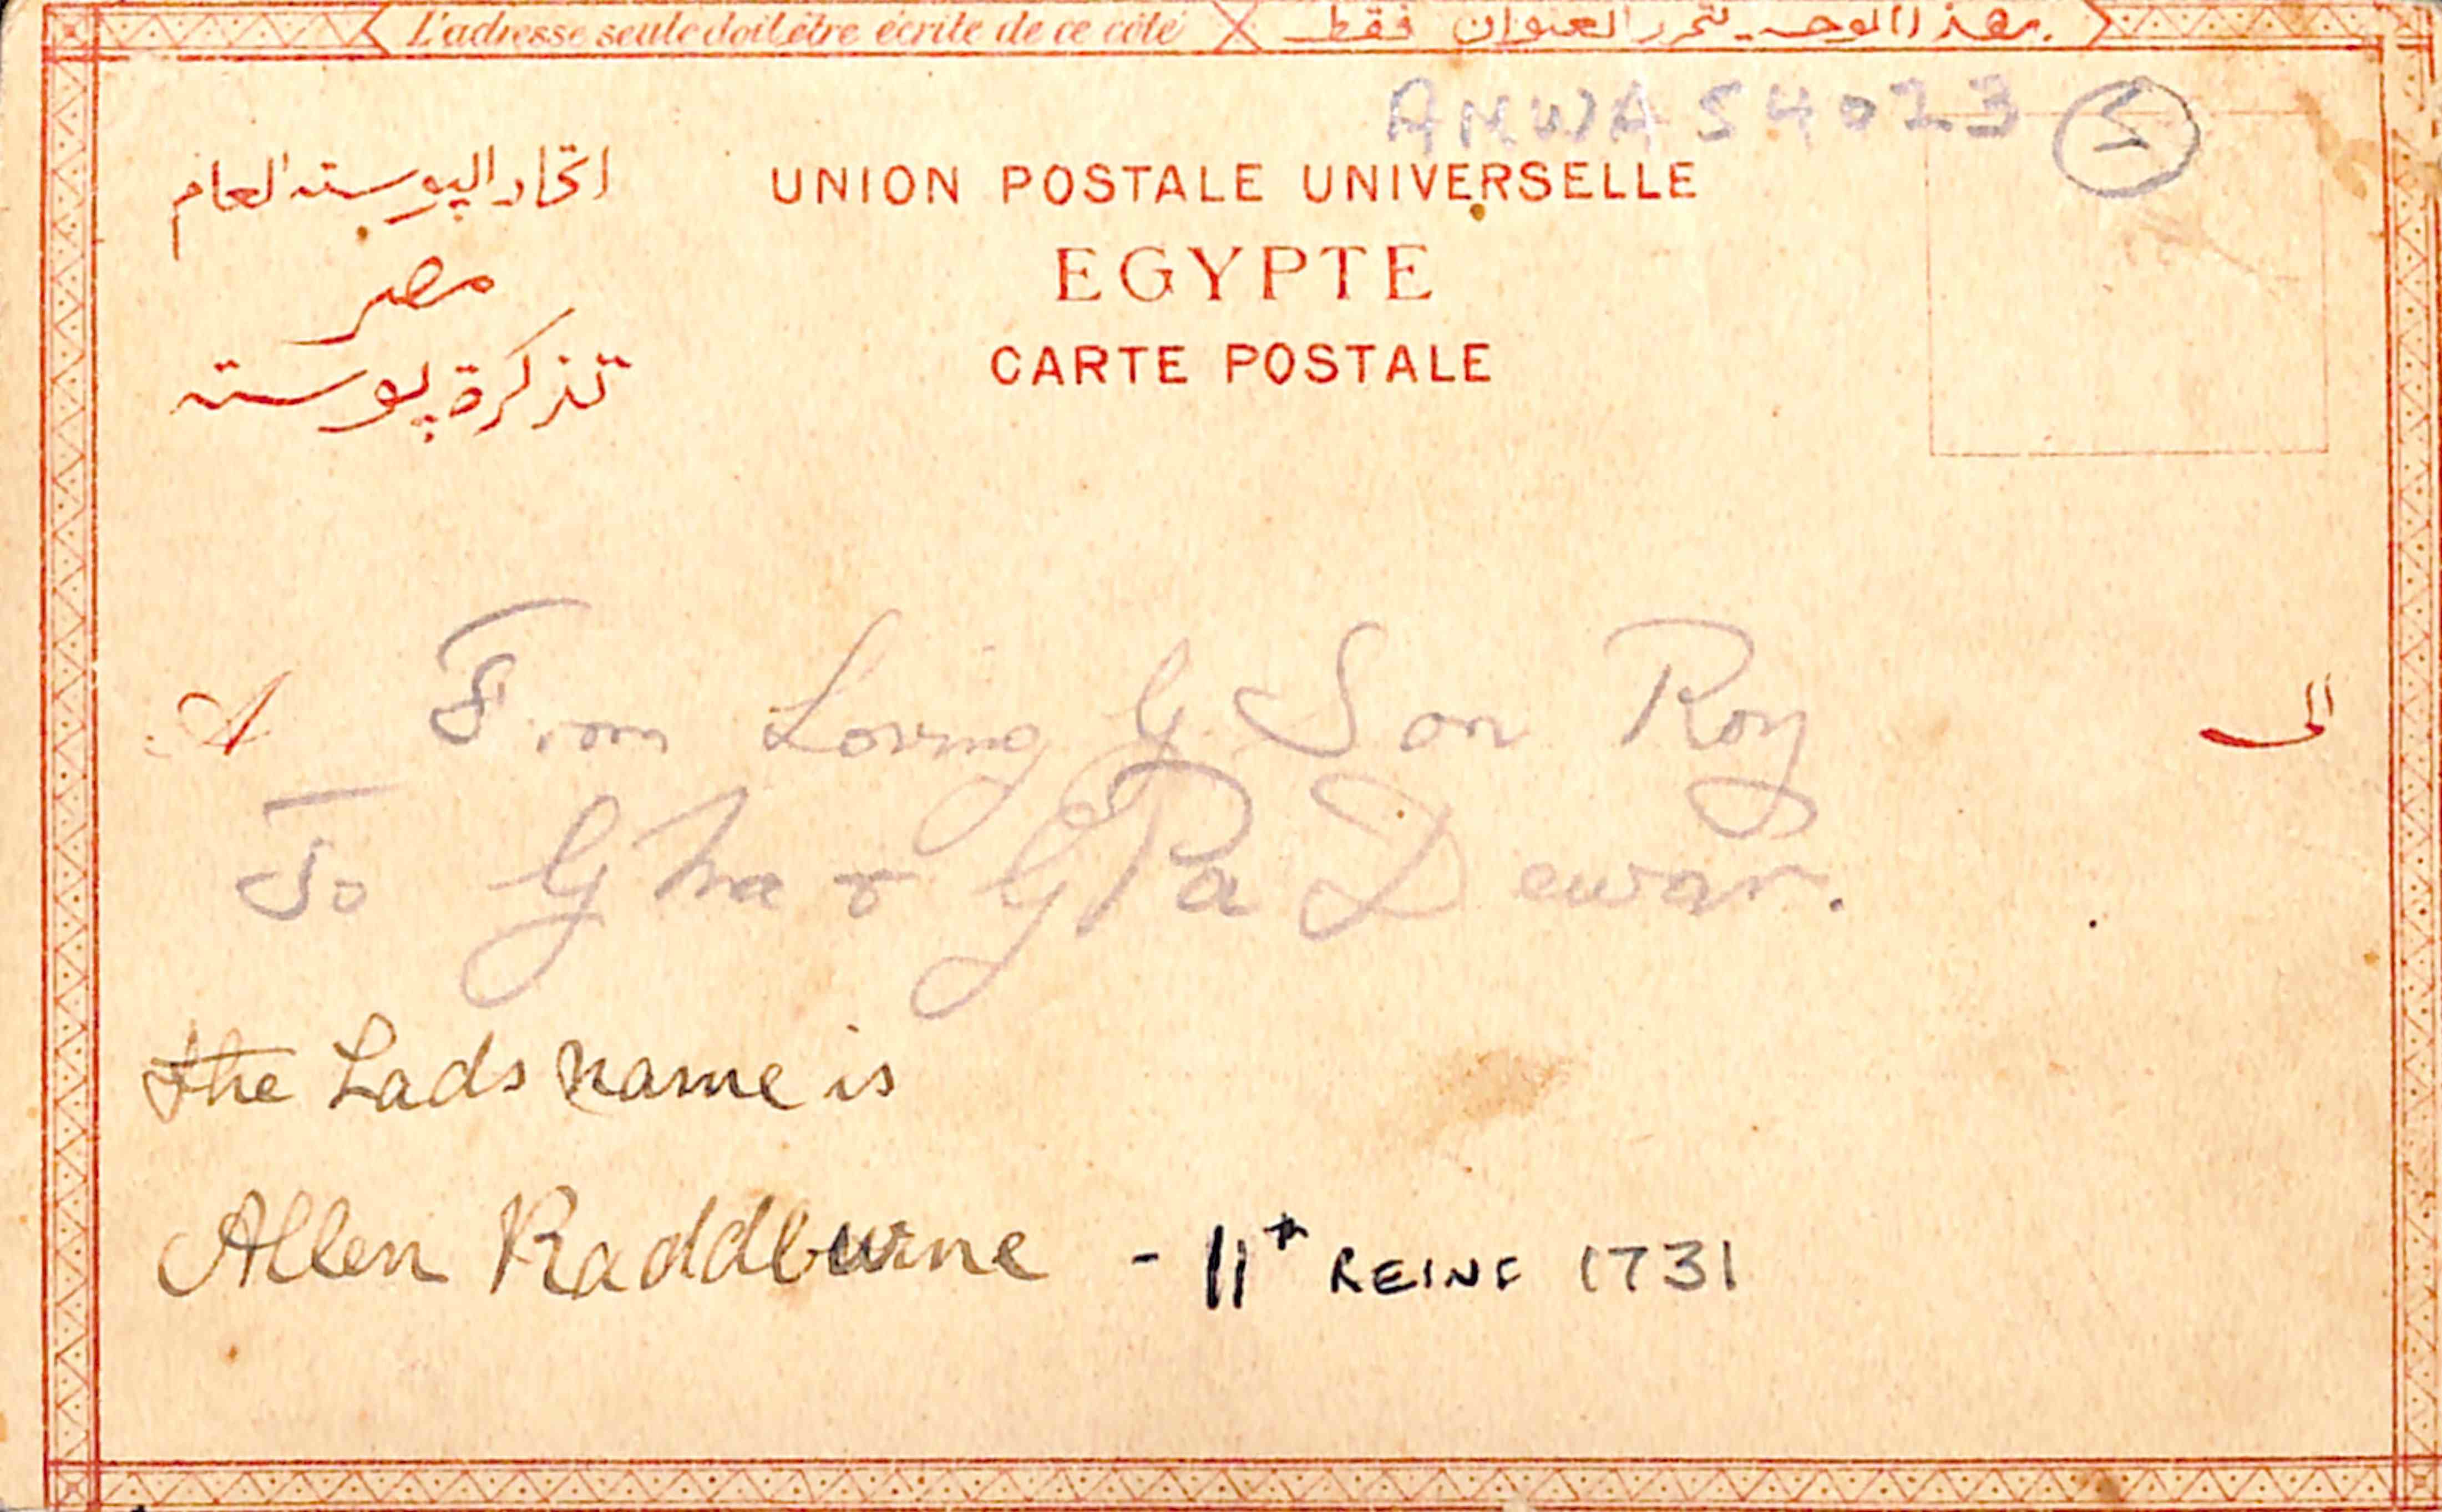 L'adresse seule doit être écrite de ce côté
بهذا الوجه تحرر العنوان فقط
ANWAS4023 5
اتحاد البوسته العام
مصر
تذكرة بوسته
UNION POSTALE UNIVERSELLE
EGYPTE
CARTE POSTALE
A
الى
From Loving G Son Roy
To G Ma & G Pa Dewar.
the Lads name is
Allen Raddburne - 11th REINF 1731